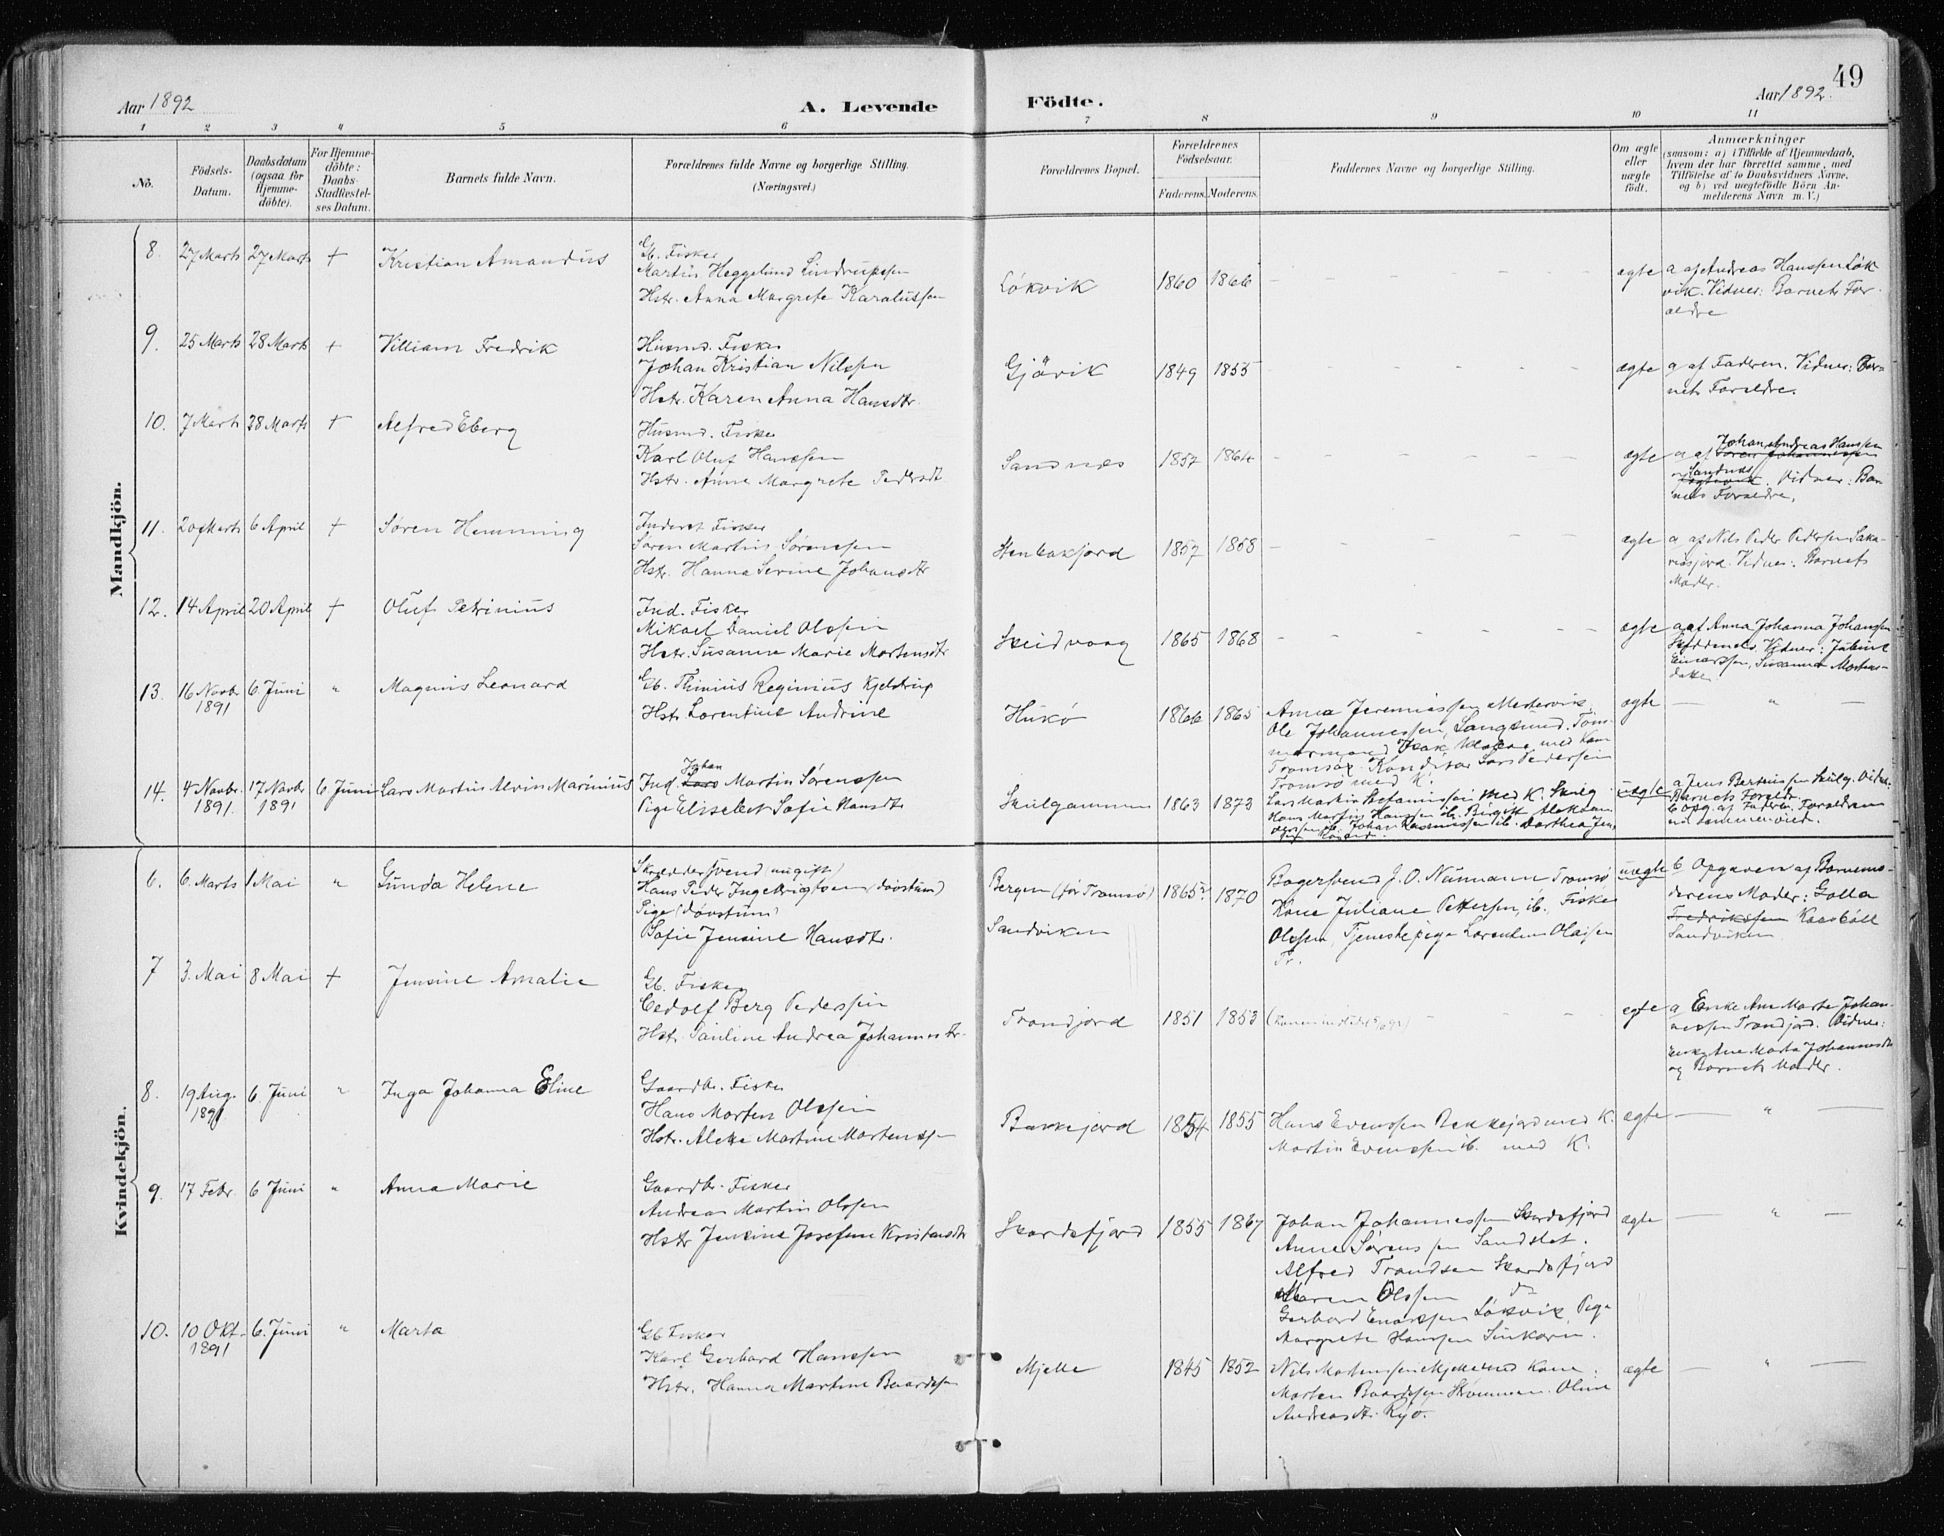 49
Aar 1892
A. Levende Födte.
Aar 1892.
1 2 3 4 5 6 7 8 9 10 11
No.
Födsels-Datum.
Daabsdatum (ogsaa for Hjemme-döbte).
For Hjemme-döbte: Daabs-Stadfæstel-ses Datum.
Barnets fulde Navn.
Forældrenes fulde Navne og borgerlige Stilling.
(Næringsvei.)
Forældrenes Bopæl.
Forældrenes Födselsaar.
Faderens. Moderens.
Faddernes Navne og borgerlige Stilling.
Om ægte eller uægte födt.
Anmærkninger
(saasom: a) i Tilfælde af Hjemmedaab, hvem der har forrettet samme, med Tilföielse af to Daabsvidners Navne, og b) ved uægtefödte Börn Anmelderens Navn m. V.)
Mandkjön.
8. 27 Marts 27 Marts + Kristian Amandus
Gb. Fisker
Martin Heggelund Lindrupsen
Hstr. Anna Margrete Karolussen
Løkvik 1860 1866 ægte
a af Andreas Hanssen Løk
vik. Vidner: Barnets For
ældre
9. 25 Marts 28 Marts + Villiam Fredrik
Husmd. Fisker
Johan Kristian Nilssen
Hstr. Karen Anna Hansdtr.
Gjövik 1849 1855 ægte
a af Faderen. Vidner: Bar
nets Forældre.
10. 7 Marts 28 Marts + Alfred Eberg
Husmd. Fisker
Karl Oluf Hanssen
Hstr. Anne Margrete Pedersdt
Sandnes 1857 1864 ægte
a af Johan Andreas Hanssen
Sandnes. Vidner: Bar
nets Forældre.
11. 20 Marts 6 April + Søren Hemming
Inderst Fisker
Søren Martin Sørenssen
Hstr. Hanna Serine Johansdtr
1857 1858 ægte
a af Nils Peder Pedersen
Vidner: Barnets
Moder.
12. 14 April 20 April + Oluf Petrinius
Ind. Fisker
Mikael Daniel Olssen
Hstr. Susanna Marie Mortensdtr
Skeidvaag 1865 1868 ægte
a af Anna Johanna Johansen
Vidner:
Susanna Mortens-
datter
13. 16 Novbr 1891 6. Juni " Magnus Leonard
Gb. Thinius Reginius Kjeldrup
Hstr. Lorentine Andrine
Hukø 1866 1865
Anna Jeremiassen Mestervik
Ole Johannessen, Langsund. Töm-
mermand Isak
Tromsø. Konditor Lars Pedersen
Tromsø med K.
ægte — " —
14. 4 Novbr. 1891. 17 Novbr 1891 6. Juni Lars Martin Alvin Marinius
Ind. Johan Martin Sørenssen
Pige Elisabet Sofie Hansdtr
Skulgammen 1863 1873
Lars Martin Stefanussen med K. Skulg
Hans Martin Hanssen ib. Birgitte
Johan Rasmussen ib. Dorthea Jen
uægte
a Jens Berntssen Skulg. Vidn.
Barnets Forældr.
b Opg. af Faderen. Forældrene
nu sammenvied.
Kvindekjön.
6. 6. Marts 1 Mai " Gunda Helene
Skrædder svend (ungift)
Hans Peder Ingebrigtsen (døvstum)
Pige (døvstum)
Sofie Jensine Hansdtr.
Bergen (før Tromsø) 1865? 1870
Sandviken
Bagersvend J. O. Nümann Tromsø
Kone Juliane Pettersen, ib. Fisker
Olssen, Tjenestepige Lorentine Olaisen
Tr.
uægte
b Opgaven af Barnemo-
derens Moder: Golla
Fredrikssen Kaasböll
Sandviken
7 3. Mai 8 Mai + Jensine Amalie
Gb. Fisker
Cedolf Berg Pederssen
Hstr. Pauline Andrea Johannesdtr.
Trondjord 1851 1853 ægte
a Enke Ane Marta Johan-
nessen Trondjord. Vidner:
Enke Ane Marta Johannesdt
og Barnets Moder.
8. 19 Aug. 1891 6. Juni " Inga Johanna Eline
Gaardbr. Fisker
Hans Morten Olssen
Hstr. Aleke Martine Mortenssen
Bakkejord 1854 1855
Hans Evenssen Bakkejord med K.
Martin Evenssen ib. med K.
ægte — " —
9. 17 Febr. 6 Juni " Anna Marie
Gaardbr. Fisker
Andreas Martin Olssen
Hstr Jensine Josefine Kristensdtr
Skardsfjord 1855 1867
Johan Johannessen Skardsfjord
Anne Sørenssen Sandslet.
Alfred Trondsen Skardsfjord
Maren Olssen do
Gerhard Enokssen Løkvik, Pige
Margrete Hanssen Sinkarn.
ægte — " —
10. 10 Okt. 1891 6. Juni " Marta
Gb Fisker
Karl Gerhard Hanssen
Hstr. Hanna Martine Baardsen
Mjelle 1845 1852
Nils Mortenssen Mjelle med Kone.
Morten Baardssen Skommen. Oline
Andreasdtr. Ryø.
ægte — " —